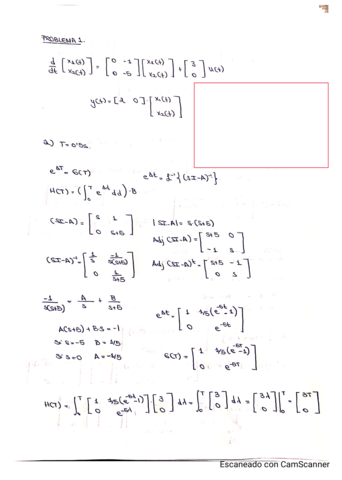 PROBLEMA 1.
d/dt [x1(t) x2(t)] = [0 -1 0 -5] [x1(t) x2(t)] + [3 0] u(t)
y(t) = [2 0] · [x1(t) x2(t)]
a) T=0'5s.
e^AT = G(T)
e^At = L^-1 {(SI-A)^-1}
H(T) = (∫0^T e^Aλ dλ) · B
(SI-A) = [S 1 0 S+5]
|SI-A| = S·(S+5)
Adj (SI-A) = [S+5 0 -1 S]
(SI-A)^-1 = [1/S -1/S(S+5) 0 1/S+5]
Adj (SI-A)^t = [S+5 -1 0 S]
-1/S(S+5) = A/S + B/S+5
e^At = [1 1/5(e^-5t -1) 0 e^-5t]
A(S+5) + B·S = -1
Si S=-5 B= 1/5
Si S=0 A= -1/5
G(T) = [1 1/5(e^-5T -1) 0 e^-5T]
H(T) = ∫0^T [1 1/5(e^-5λ -1) 0 e^-5λ] · [3 0] dλ = ∫0^T [3 0] dλ = [3λ 0] |0^T = [3T 0]
Escaneado con CamScanner